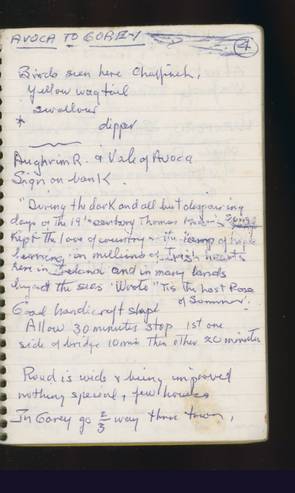 AVOCA TO GOREY-1
4
Birds seen here Chaffinch,
Yellow wagtail
swallow
* dipper
Aughrim R. & Vale of Avoca
Sign on bank.
"During the dark and all but despairing
days of the 19th century Thomas Moore's songs
Kept the love of country & the lamp of hope
burning in millions of Irish hearts
here in Ireland and in many lands
beyond the seas" Wrote "Tis the Last Rose
of Summer".
Good handicraft shop
Allow 30 minutes stop 1st one
side of bridge 10 min then other 20 minutes
Road is wide & being improved
nothing special, few houses
In Gorey go 2/3 way thro town,